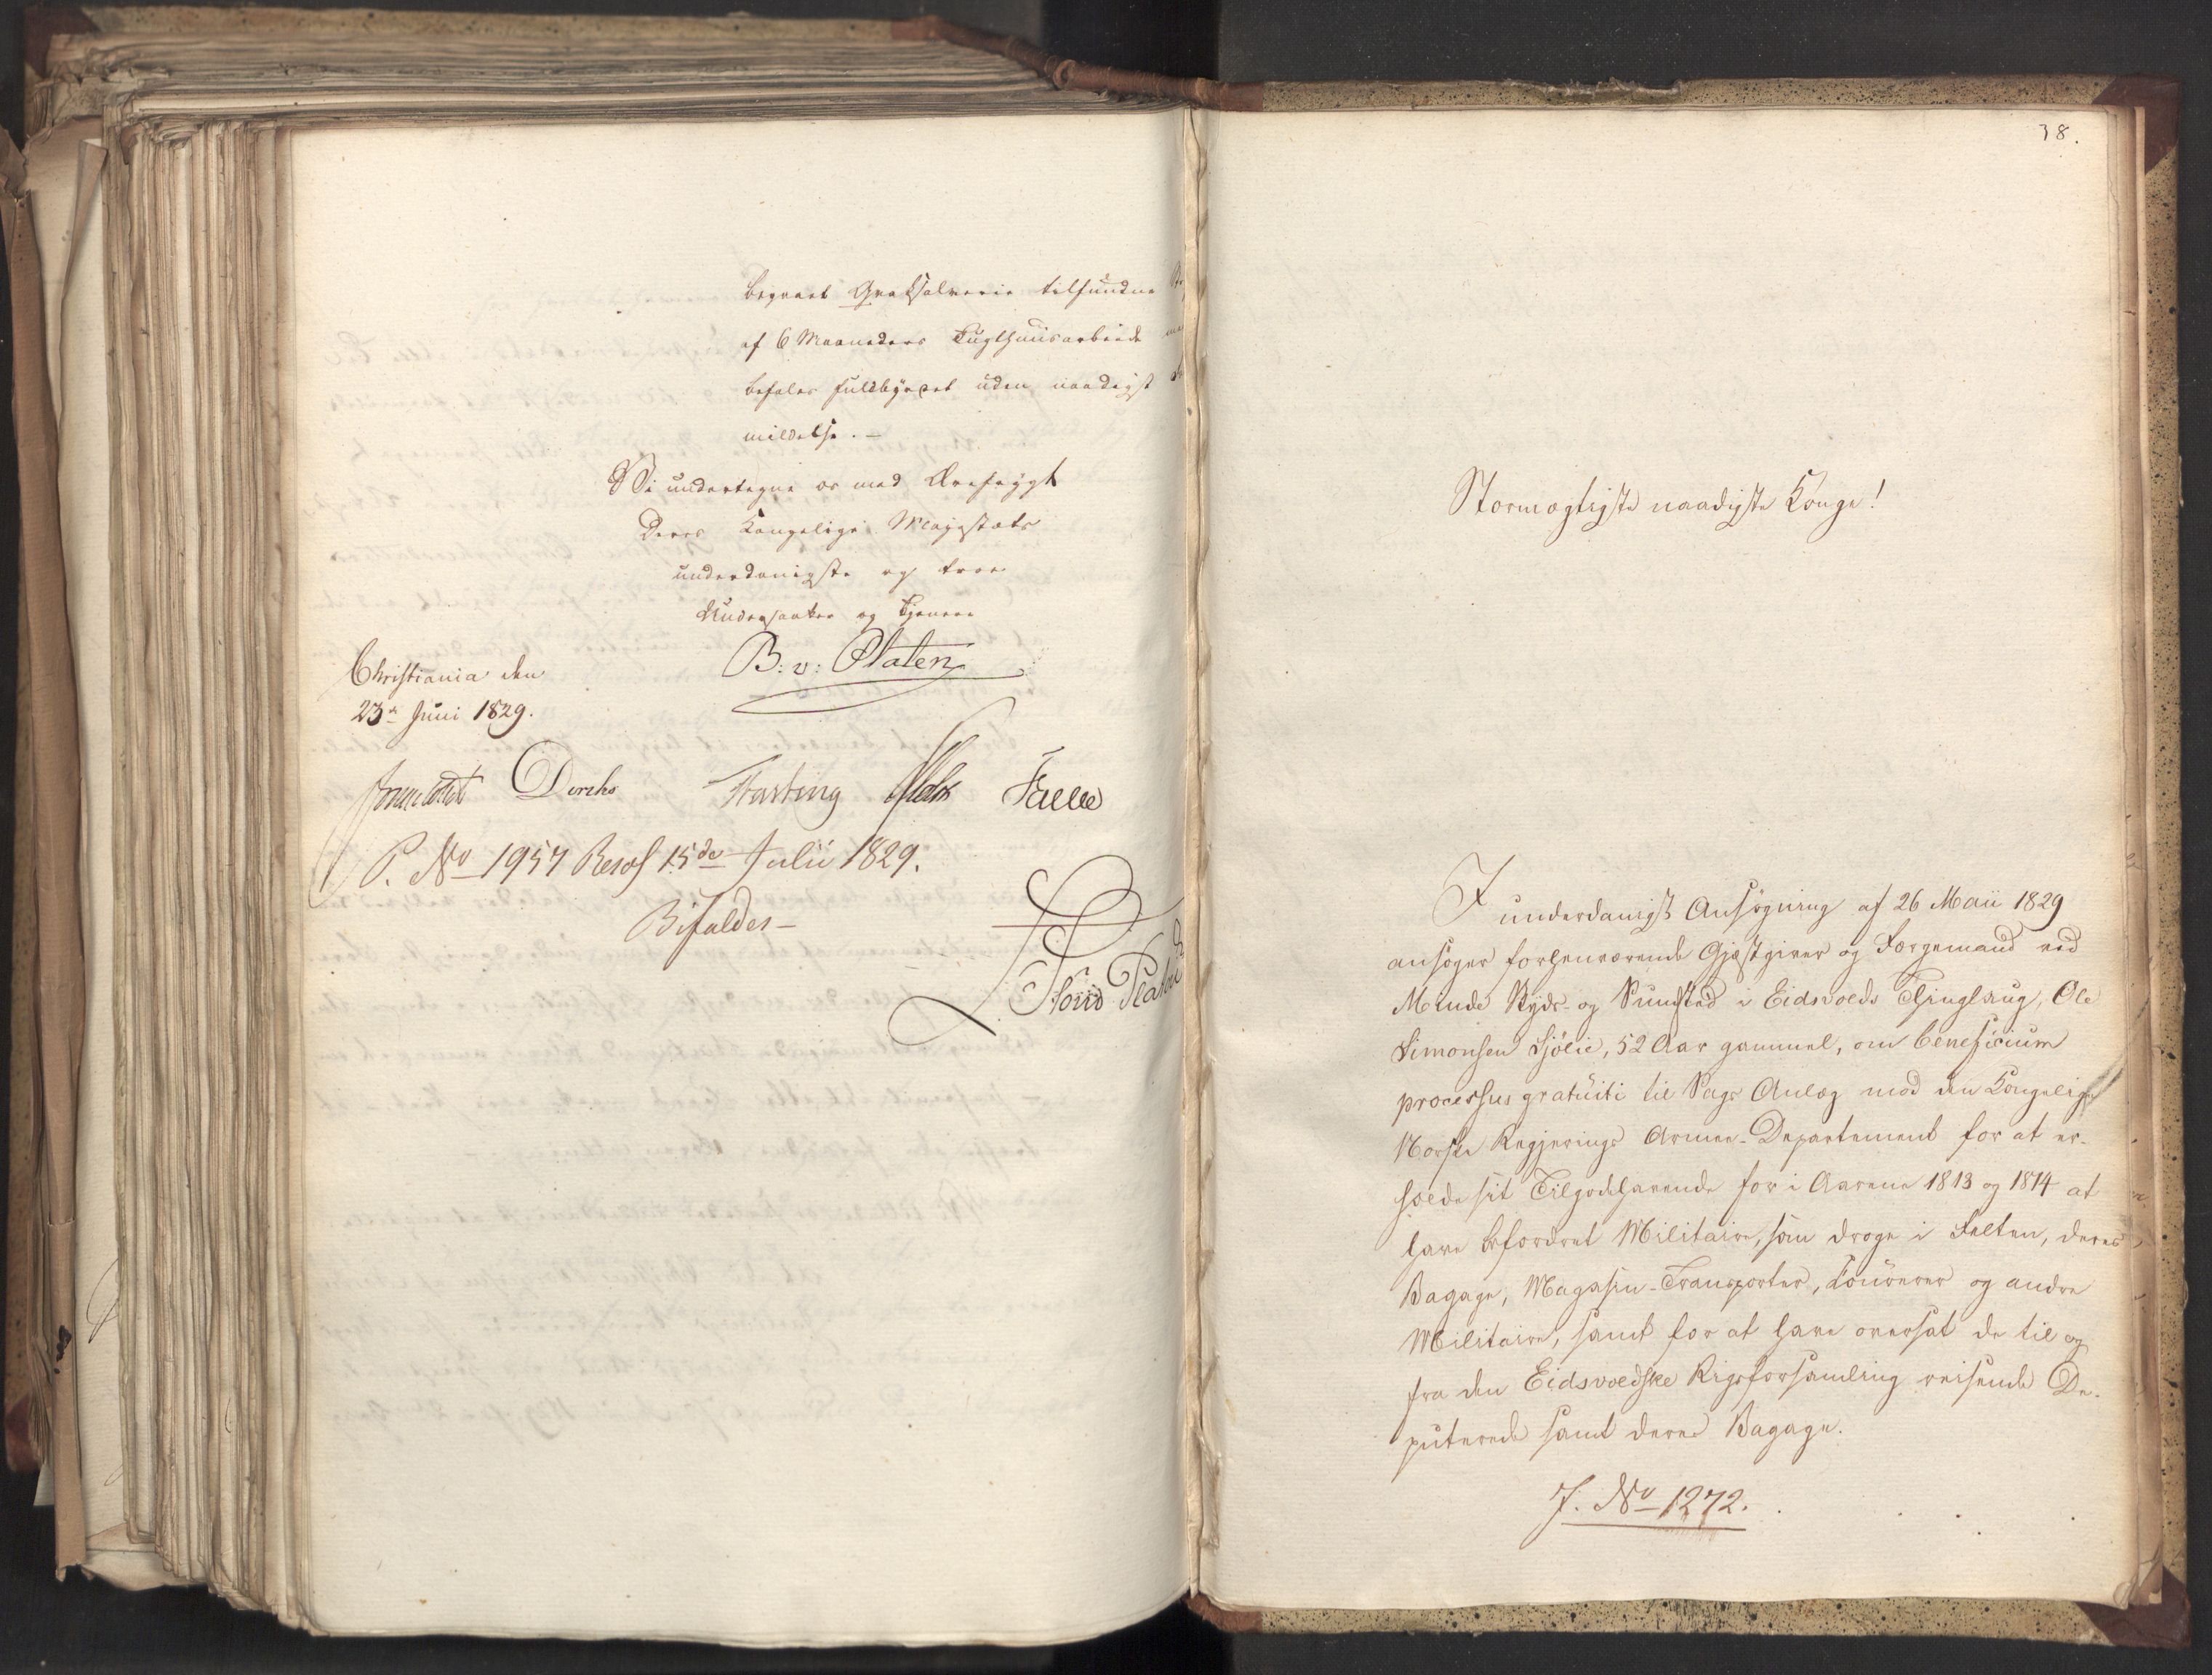 begaaet Qvaksalverie tilfundne
af 6 Maaneders Tugthuusarbeide
befales fuldbyrdet uden naadigst
mildelse. –
Vi undertegne os med Ærefrygt
Deres Kongelige Majestæts
underdanigste og troe
Undersaatter og Tjenere
B: v: Platen
Christiania den
23de Juni 1829.
Diriks Fasting Falbe
P. No 1957 Resol 15de Julii 1829.
Bifaldes –
38.
Stormægtigste naadigste Konge!
I underdanigst Ansøgning af 26 Maii 1829
ansøger forhenværende Gjæstgiver og Færgemand ved
Minde Skyds- og Sundsted i Eidsvolds Thinglaug, Ole
Simonsen Sjølie, 52 Aar gammel, om beneficium
processus gratuiti til Sags Anlæg mod den Kongelige
Norske Regjerings Armee-Departement for at er-
holde sit Tilgodehavende for i Aarene 1813 og 1814 at
have befordret Militaire, som droge i Felten, deres
Bagage, Magasin-Transporter, Courerer og andre
Militaire, samt for at have oversat de til og
fra den Eidsvoldske Rigsforsamling reisende De-
puterede samt deres Bagage.
J. No 1272.